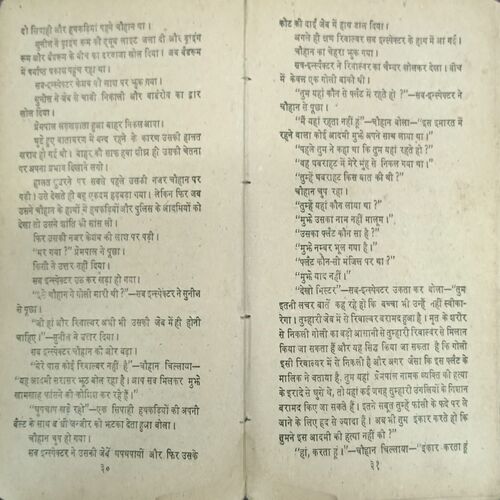 दो सिपाही और हथकड़ियां पहने चौहान था।
सुनील ने ड्राइंग रूम की ट्यूब लाइट जला दी और ड्राइंग
रूम और बैडरूम के बीच का दरवाजा खोल दिया। अब बैडरूम
में पर्याप्त प्रकाश पहुंच रहा था।
सब-इन्स्पेक्टर केशव की लाश पर झुक गया।
सुनील ने जेब से चाबी निकाली और वार्डरोब का द्वार
खोल दिया।
प्रेमपाल लड़खड़ाता हुआ बाहर निकल आया।
घुटे हुए वातावरण में बन्द रहने के कारण उसकी हालत
खराब हो गई थी। बाहर की साफ हवा शीघ्र ही उसकी चेतना
पर अपना प्रभाव दिखाने लगी।
हालत सुधरने पर सबसे पहले उसकी नजर चौहान पर
पड़ी। उसे देखते ही वह एकदम हड़बड़ा गया। लेकिन फिर जब
उसने चौहान के हाथों में हथकड़ियां और पुलिस के आदमियों को
देखा तो उसने शांति की सांस ली।
फिर उसकी नजर केशव की लाश पर पड़ी।
"मर गया?" प्रेमपाल ने पूछा।
किसी ने उत्तर नहीं दिया।
सब-इन्स्पेक्टर उठ कर खड़ा हो गया।
"इसे चौहान ने गोली मारी थी?"—सब-इन्स्पेक्टर ने सुनील
से पूछा।
"जी हां और रिवाल्वर अभी भी उसकी जेब में ही होनी
चाहिए।"—सुनील ने उत्तर दिया।
सब इन्स्पेक्टर चौहान की ओर बढ़ा।
"मेरे पास कोई रिवाल्वर नहीं है"—चौहान चिल्लाया—
"यह आदमी सरासर झूठ बोल रहा है। आप सब मिलकर मुझे
खामखाह फांसने की कोशिश कर रहे हैं।"
"चुपचाप खड़े रहो"—एक सिपाही हथकड़ियों की अपनी
बैल्ट के साथ बंधी जन्जीर को झटका देता हुआ बोला।
चौहान चुप हो गया।
सब इन्स्पेक्टर ने उसकी जेबें थपथपायीं और फिर उसके
३०
कोट की दाईं जेब में हाथ डाल दिया।
अगले ही क्षण रिवाल्वर सब इन्स्पेक्टर के हाथ में आ गई।
चौहान का चेहरा झुक गया।
सब-इन्स्पेक्टर ने रिवाल्वर का चैम्बर खोलकर देखा। बीच
में केवल एक गोली बाकी थी।
"तुम यहां कौन से फ्लैट में रहते हो?"—सब-इन्स्पेक्टर ने
चौहान से पूछा।
"मैं यहां रहता नहीं हूं"—चौहान बोला—"इस इमारत में
रहने वाला कोई आदमी मुझे अपने साथ लाया था।"
"पहले तुम ने कहा था कि तुम यहां रहते हो?"
"वह घबराहट में मेरे मुंह से निकल गया था।"
"तुम्हें घबराहट किस बात की थी?"
चौहान चुप रहा।
"तुम्हें यहां कौन लाया था?"
"मुझे उसका नाम नहीं मालूम।"
"उसका फ्लैट कौन सा है?"
"मुझे नम्बर भूल गया है।"
"फ्लैट कौन-सी मंजिल पर था?"
"मुझे याद नहीं।"
"देखो मिस्टर"—सब-इन्स्पेक्टर उकता कर बोला—"तुम
इतनी लचर बातें कह रहे हो कि बच्चा भी उन्हें नहीं स्वीका-
रेगा। तुम्हारी जेब में से रिवाल्वर बरामद हुआ है। मृत के शरीर
से निकली गोली का बड़ी आसानी से तुम्हारी रिवाल्वर से मिलान
किया जा सकता है और यह सिद्ध किया जा सकता है कि गोली
इसी रिवाल्वर में से निकली है और अगर जैसा कि इस फ्लैट के
मालिक ने बताया है, तुम यहां प्रेमपाल नामक व्यक्ति की हत्या
के इरादे से घुसे थे, तो यहां कई जगह तुम्हारी उंगलियों के निशान
बरामद किए जा सकते हैं। इतने सबूत तुम्हें फांसी के फंदे पर ले
जाने के लिए हद से ज्यादा हैं। अब भी तुम इंकार करते हो कि
तुमने इस आदमी की हत्या नहीं की?"
"हां, करता हूं।"—चौहान चिल्लाया—"इंकार करता हूं
३१